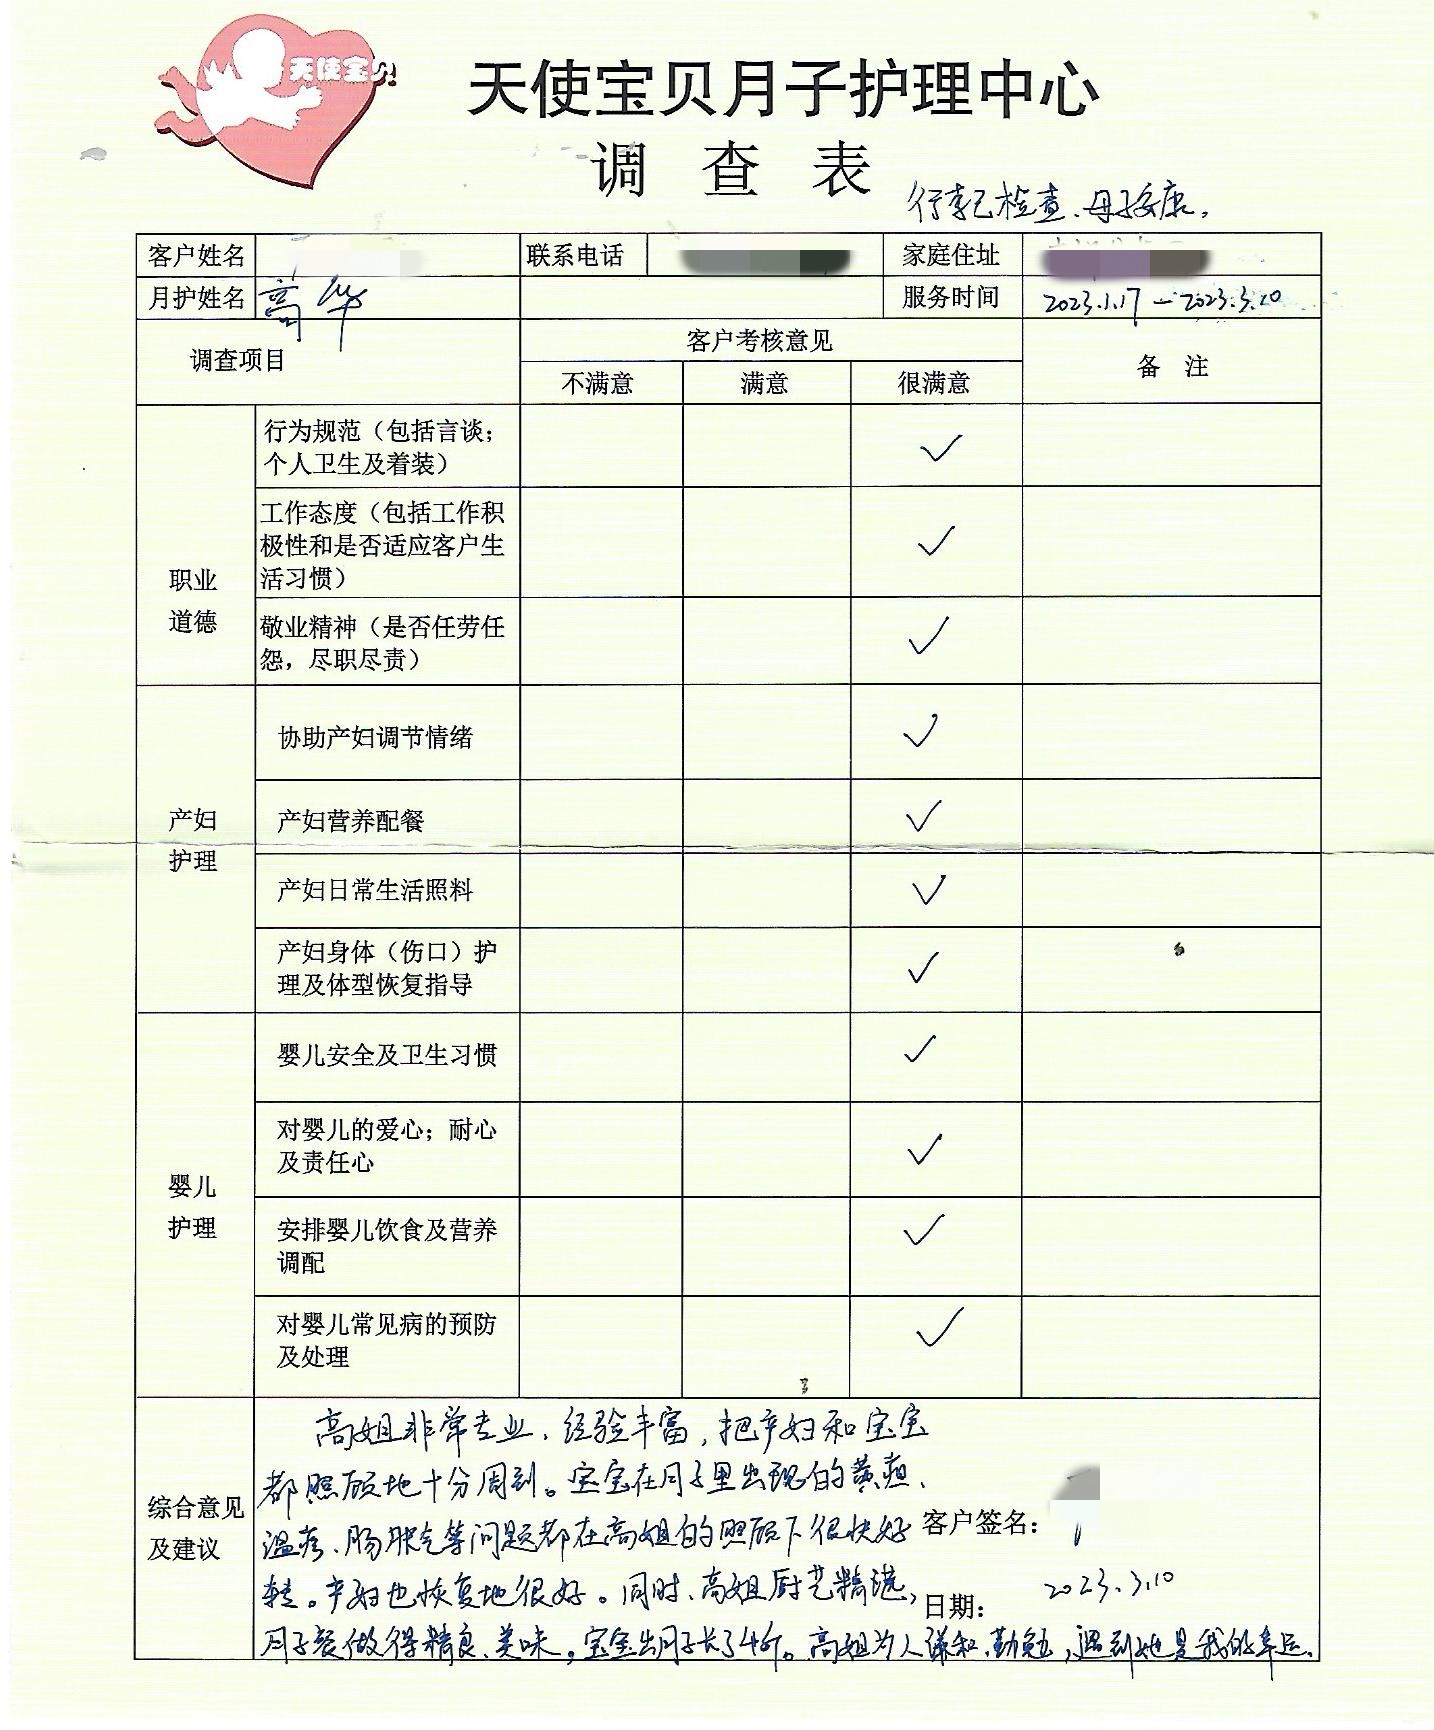 天使宝贝
天使宝贝月子护理中心
调 查 表
行李已检查、母子安康。
客户姓名 联系电话 家庭住址
月护姓名 高华 服务时间 2023.1.17 — 2023.3.10
调查项目 客户考核意见 备 注
不满意 满意 很满意
职业
道德
行为规范（包括言谈；
个人卫生及着装） ✓
工作态度（包括工作积
极性和是否适应客户生
活习惯） ✓
敬业精神（是否任劳任
怨，尽职尽责） ✓
产妇
护理
协助产妇调节情绪 ✓
产妇营养配餐 ✓
产妇日常生活照料 ✓
产妇身体（伤口）护
理及体型恢复指导 ✓
婴儿
护理
婴儿安全及卫生习惯 ✓
对婴儿的爱心；耐心
及责任心 ✓
安排婴儿饮食及营养
调配 ✓
对婴儿常见病的预防
及处理 ✓
综合意见
及建议
高姐非常专业、经验丰富，把产妇和宝宝
都照顾地十分周到。宝宝在月子里出现的黄疸、
湿疹、肠胀气等问题都在高姐的照顾下很快好
转。产妇也恢复地很好。同时、高姐厨艺精湛，
月子餐做得精良、美味。宝宝出月子长了4斤。高姐为人谦和、勤勉，遇到她是我的幸运。
客户签名：
日期： 2023.3.10